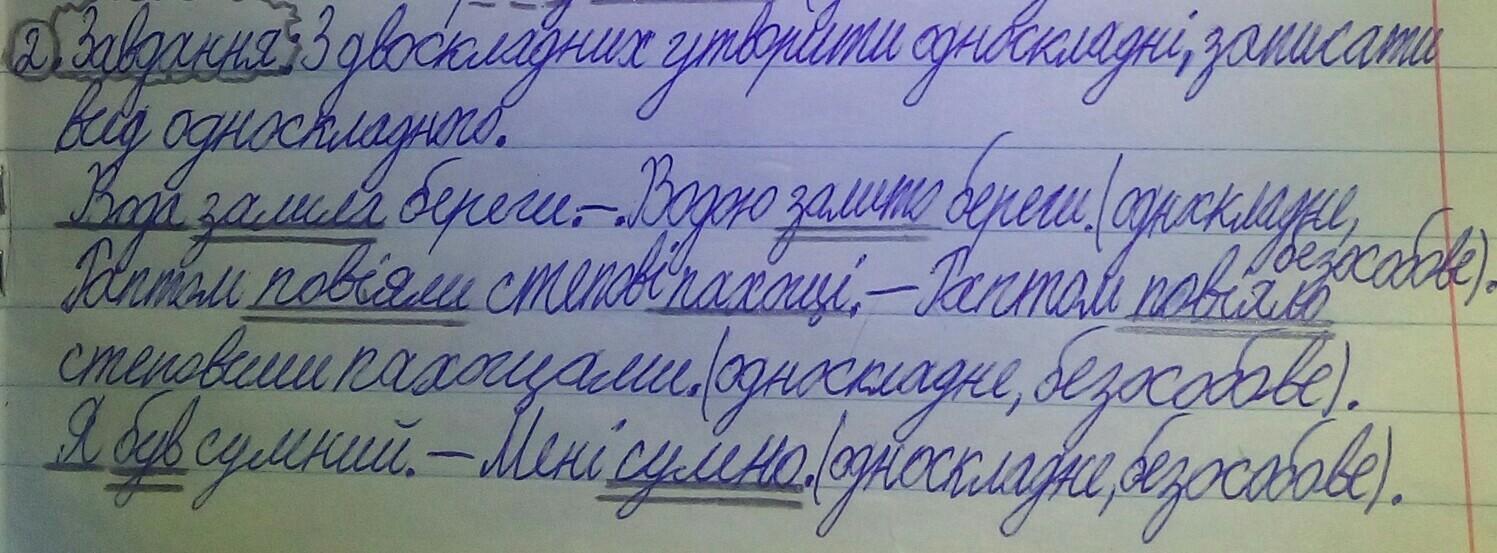 2. Завдання: З двоскладних утворити односкладні, записати
вид односкладного.
Вода залила береги. – Водою залито береги. (односкладне,
безособове).
Раптом повіяли степові пахощі. – Раптом повіяло
степовими пахощами. (односкладне, безособове).
Я був сумний. – Мені сумно. (односкладне, безособове).